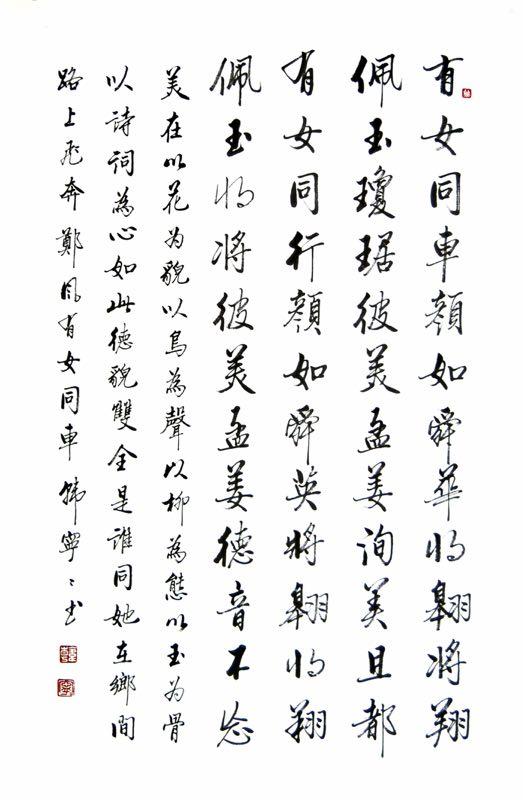 有女同車顏如舜華将翱將翔
佩玉瓊琚彼美孟姜洵美且都
有女同行顏如舜英將翱将翔
佩玉将將彼美孟姜德音不忘
美在以花为貌以鳥為聲以柳為態以玉为骨
以詩詞為心如此德貌雙全是誰同她在鄉間
路上飛奔鄭風有女同車韓寧〻书